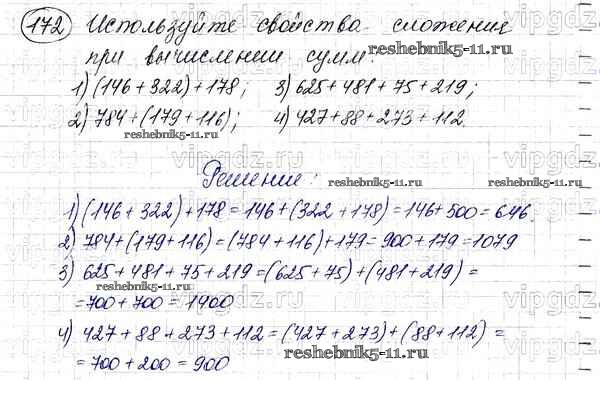 172 Используйте свойства сложения
при вычислении сумм:
1) (146 + 322) + 178; 3) 625 + 481 + 75 + 219;
2) 784 + (179 + 116); 4) 427 + 88 + 273 + 112.
reshebnik5-11.ru reshebnik5-11.ru
vipgdz.ru vipgdz.ru vipgdz.ru
Решение:
reshebnik5-11.ru reshebnik5-11.ru
1) (146 + 322) + 178 = 146 + (322 + 178) = 146 + 500 = 646.
2) 784 + (179 + 116) = (784 + 116) + 179 = 900 + 179 = 1079
3) 625 + 481 + 75 + 219 = (625 + 75) + (481 + 219) =
= 700 + 700 = 1400
4) 427 + 88 + 273 + 112 = (427 + 273) + (88 + 112) =
reshebnik5-11.ru
= 700 + 200 = 900